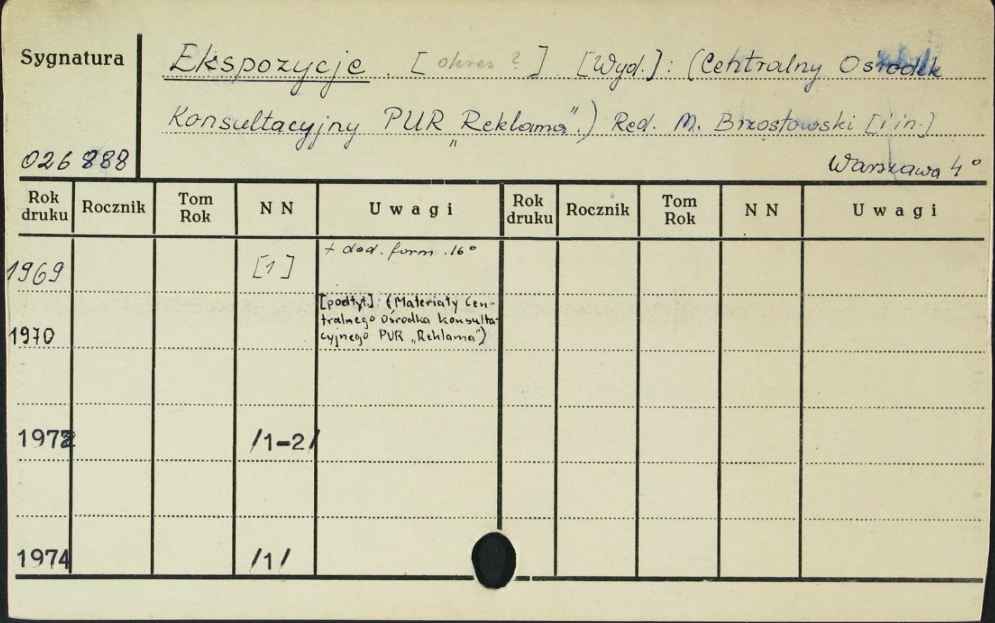 Sygnatura
Ekspozycje. [okres ?] [Wyd.]: (Centralny Ośrodek
Konsultacyjny PUR „Reklama”.) Red. M. Brzostowski [i in.]
026 888
Warszawa 4°
Rok druku Rocznik Tom Rok NN Uwagi Rok druku Rocznik Tom Rok NN Uwagi
+ dod. form. 16°
1969 [1]
[podtyt]: (Materiały Cen-
tralnego Ośrodka Konsulta-
1970 cyjnego PUR „Reklama”)
1972 /1-2/
1974 /1/